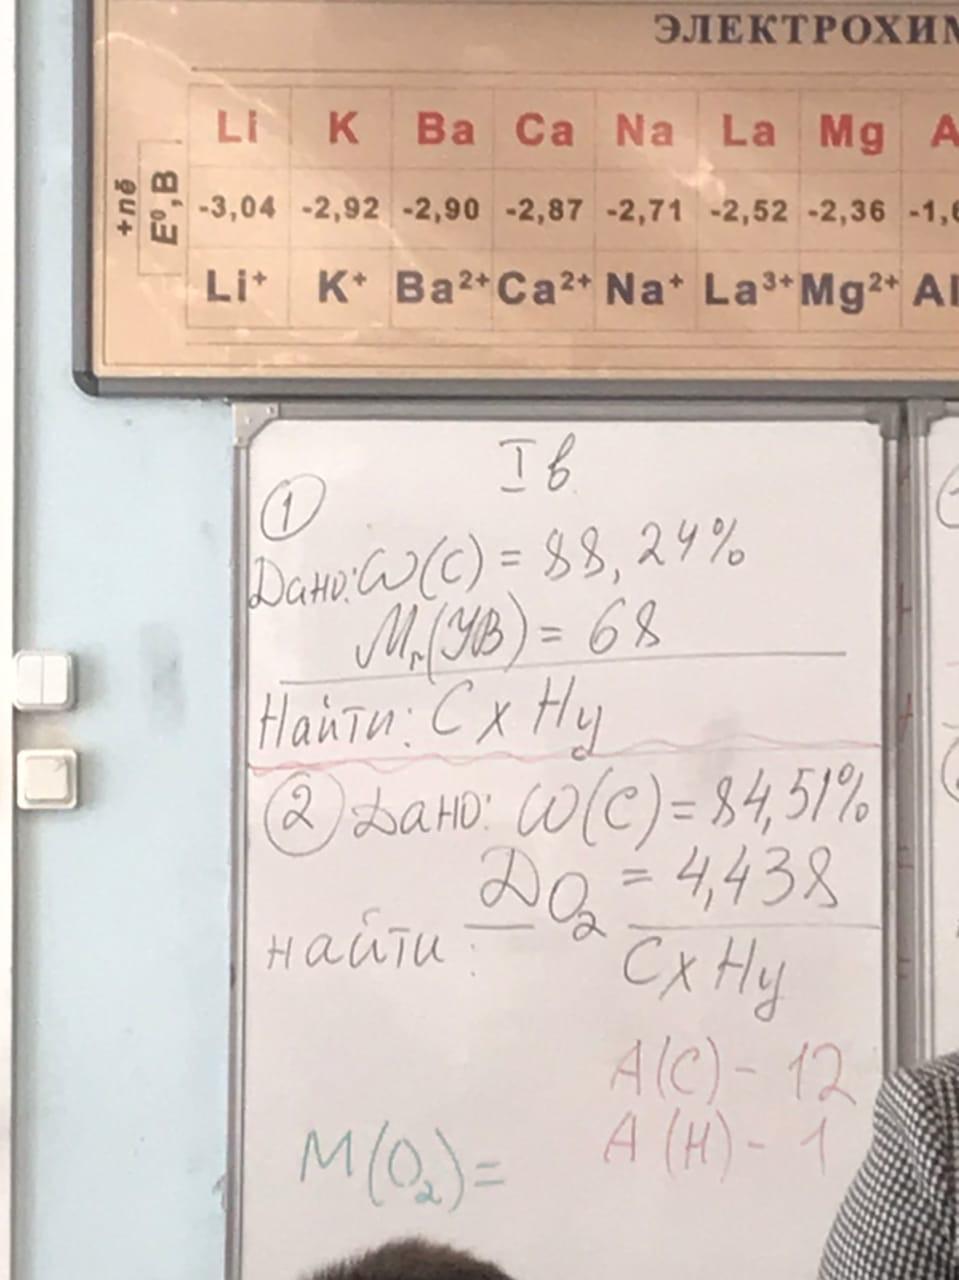 ЭЛЕКТРОХИМ
Li K Ba Ca Na La Mg A
+nē E⁰,В -3,04 -2,92 -2,90 -2,87 -2,71 -2,52 -2,36 -1,6
Li⁺ K⁺ Ba²⁺ Ca²⁺ Na⁺ La³⁺ Mg²⁺ Al
I в
1
Дано: W(C) = 88,24%
Mr(УВ) = 68
Найти: CxHy
2 Дано: W(C) = 84,51%
DO₂ = 4,438
найти: CxHy
A(C) - 12
A(H) - 1
M(O₂) =